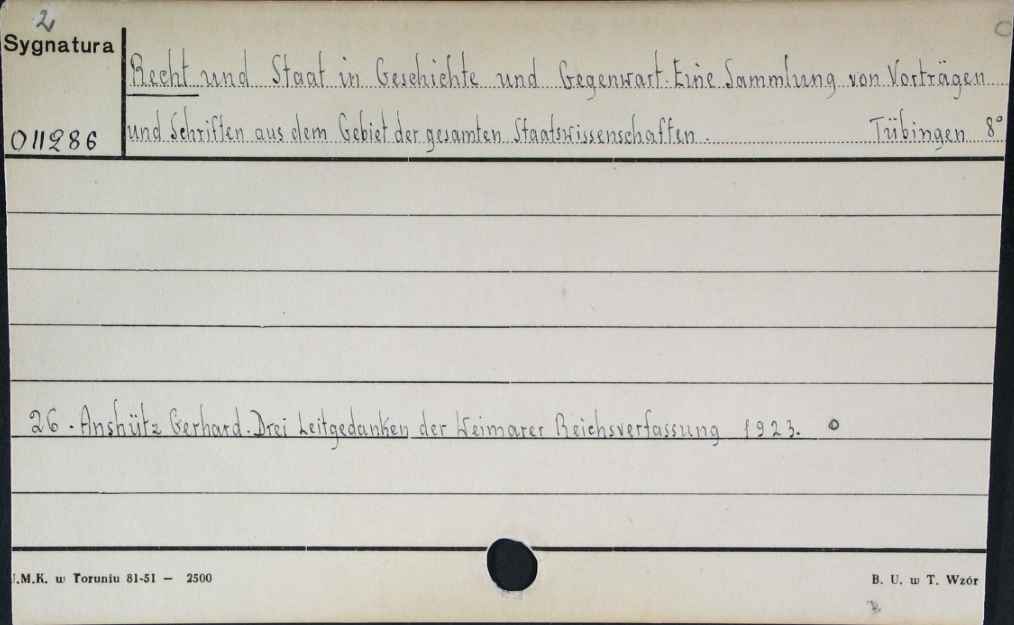 2
Sygnatura
Recht und Staat in Geschichte und Gegenwart. Eine Sammlung von Vorträgen
011286
und Schriften aus dem Gebiet der gesamten Staatswissenschaften. Tübingen 8°
26. Anshütz Gerhard. Drei Leitgedanken der Weimarer Reichsverfassung 1923. o
U.M.K. w Toruniu 81-51 — 2500
B. U. w T. Wzór